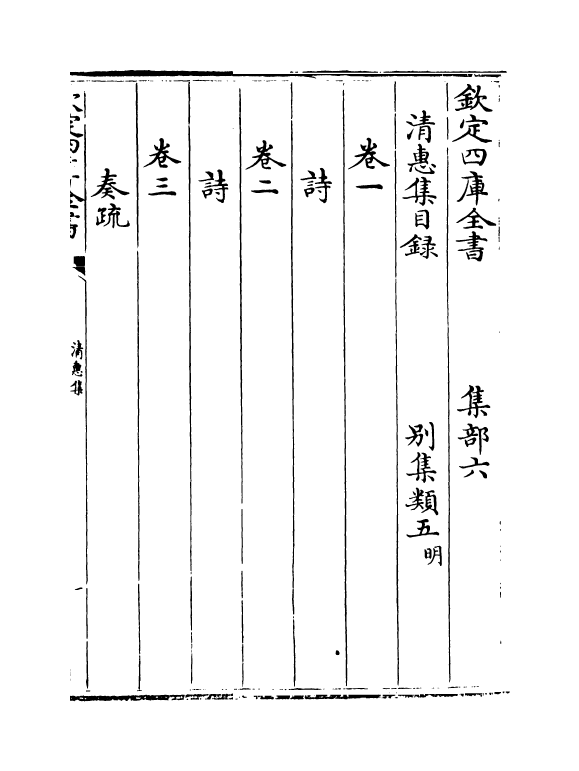 欽定四庫全書　集部六
清惠集目録　别集類五明
卷一
詩
卷二
詩
卷三
奏疏
清惠集